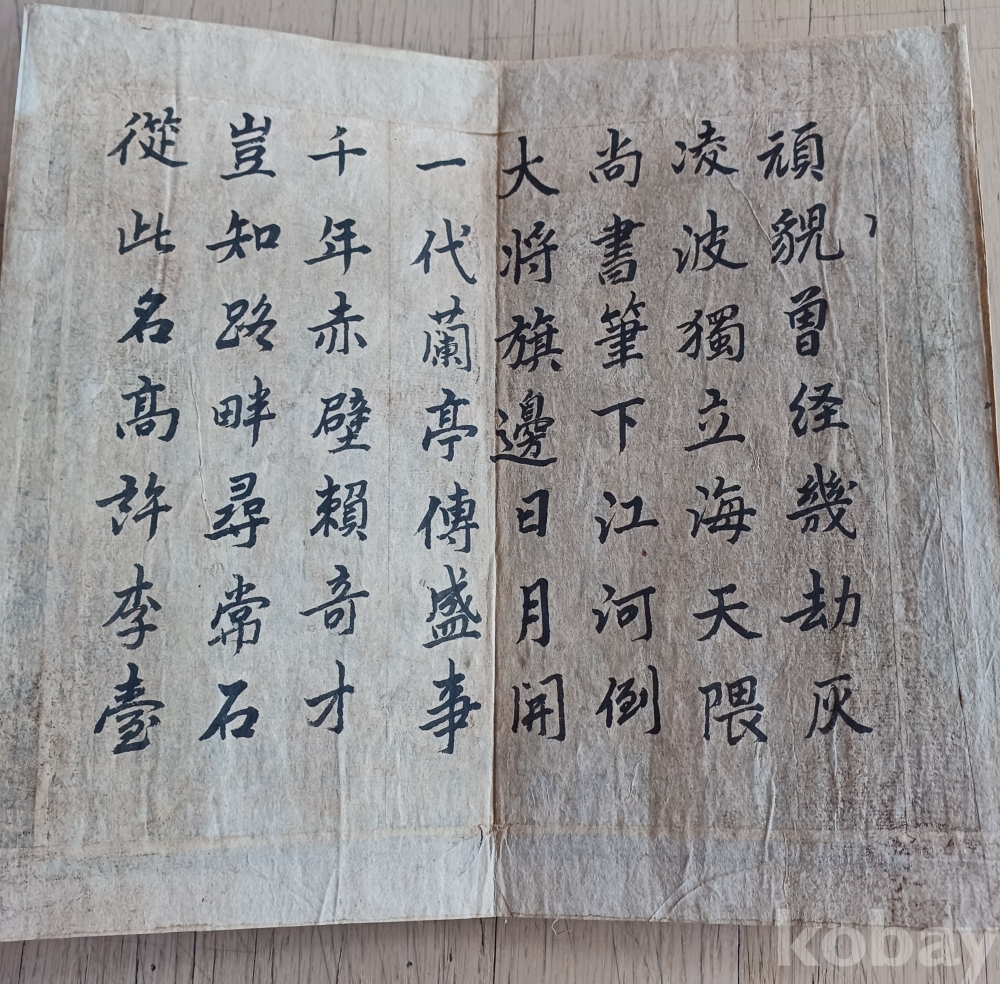 頑貌曾経幾劫灰
凌波獨立海天隈
尚書筆下江河倒
大将旗邊日月開
一代蘭亭傳盛事
千年赤壁賴竒才
豈知路畔尋常石
從此名髙許李臺
kobay